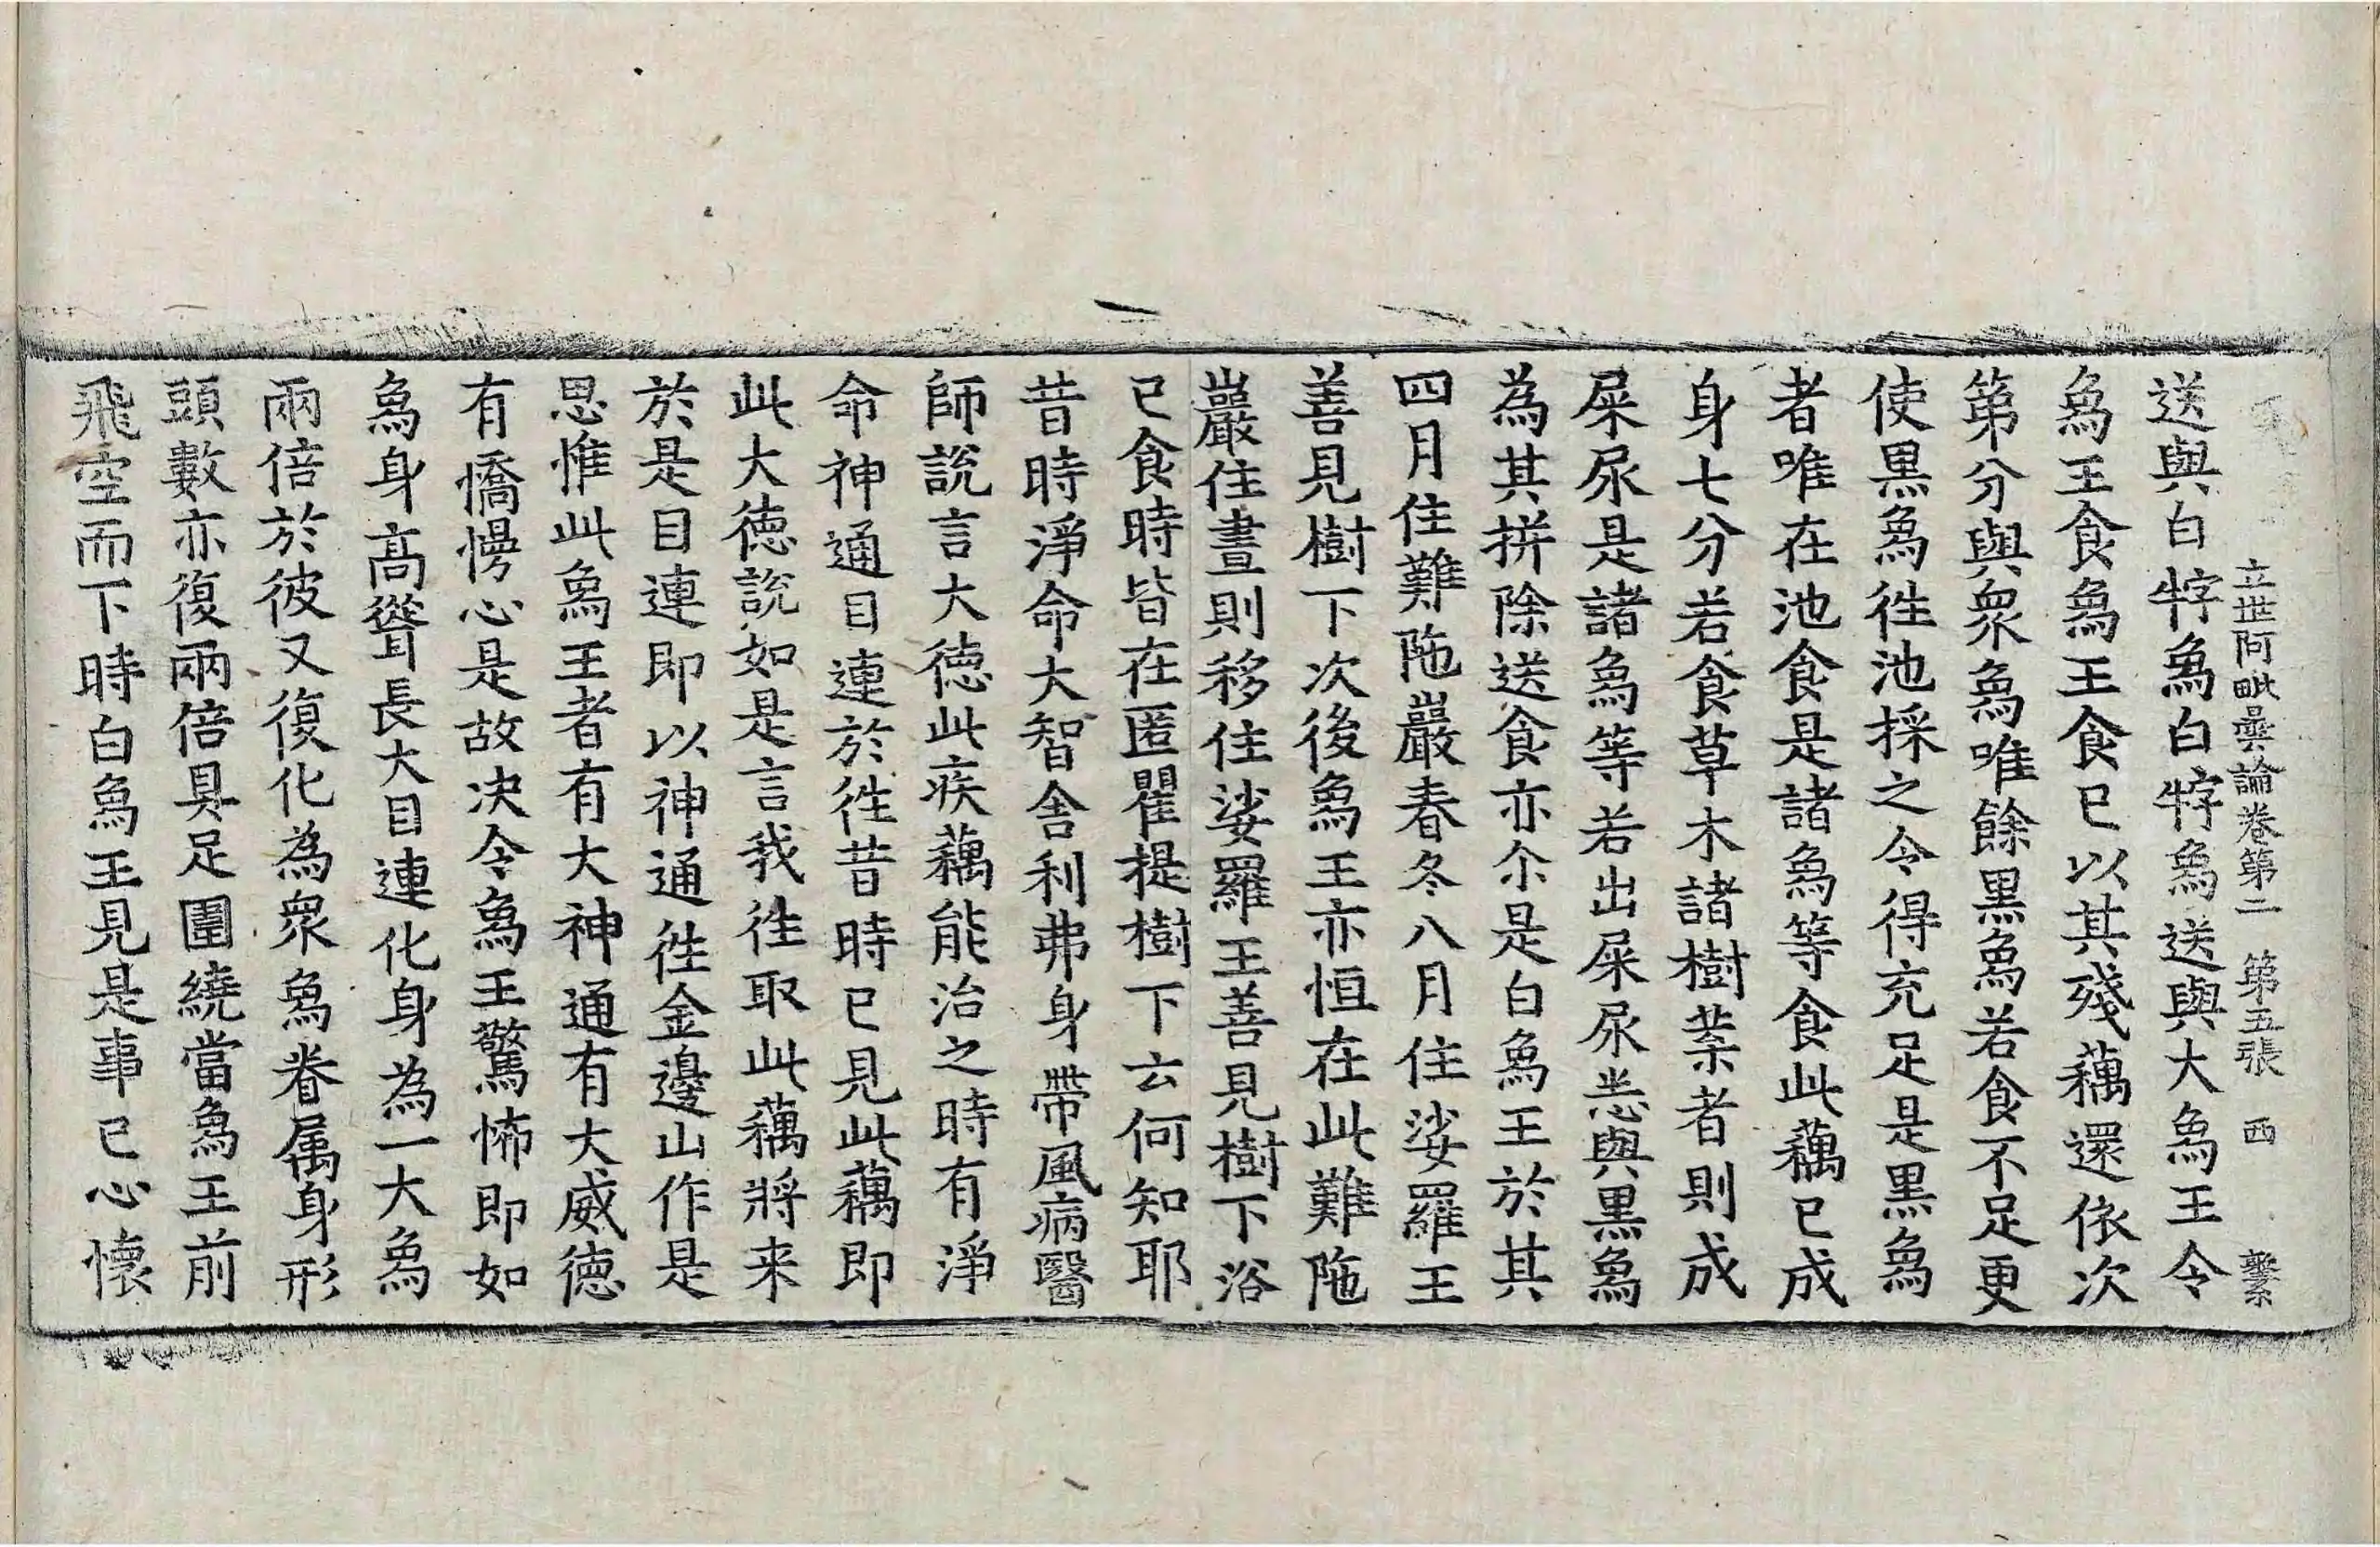 立世阿毗曇論卷第二　第五張　西　繫
送與白牸爲白牸爲送與大爲王令
爲王食爲王食已以其殘藕還依次
第分與衆爲唯餘黑爲若食不足更
使黑爲徃池採之令得充足是黑爲
者唯在池食是諸爲等食此藕已成
身七分若食草木諸樹葉者則成
屎尿是諸爲等若出屎尿悉與黑爲
為其拼除送食亦尒是白爲王於其
四月住難陁巖春冬八月住娑羅王
善見樹下次後爲王亦恒在此難陁
巖住晝則移住娑羅王善見樹下浴
已食時皆在匿瞿提樹下云何知耶
昔時淨命大智舍利弗身帶風病醫
師說言大德此疾藕能治之時有淨
命神通目連於徃昔時已見此藕即
此大德說如是言我徃取此藕將来
於是目連即以神通徃金邊山作是
思惟此爲王者有大神通有大威德
有憍慢心是故决令爲王驚怖即如
爲身高聳長大目連化身為一大爲
兩倍於彼又復化為衆爲眷属身形
頭數亦復兩倍具足圍繞當爲王前
飛空而下時白爲王見是事已心懷